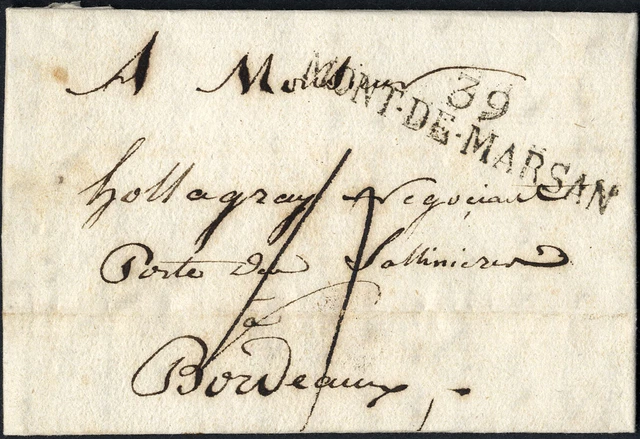 A Monsieur
39
MONT-DE-MARSAN
hollagray Negociant
Porte des Sallinieres
a
Bordeaux